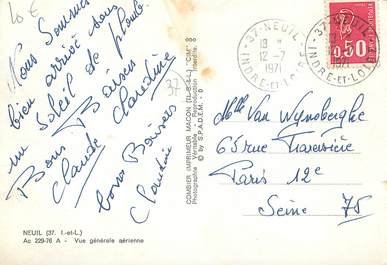 10 €
Nous Sommes
bien arrivé sous
un Soleil de plomb.
Bons Baisers
Claude Claudine
bons Baisers
Claudine
37
NEUIL (37. I.-et-L.)
Ac 229-76 A - Vue générale aérienne
COMBIER IMPRIMEUR MACON (S.-&-L.) "CIM"
Photographie Véritable - Reproduction Interdite
© by S.P.A.D.E.M.
37-NEUIL
INDRE-ET-LOIRE
13 H
12-7
1971
37-NEUIL
INDRE-ET-LOIRE
1971
0,50
Mlle Van Wynsberghe
65 rue
Paris 12e
Seine 75